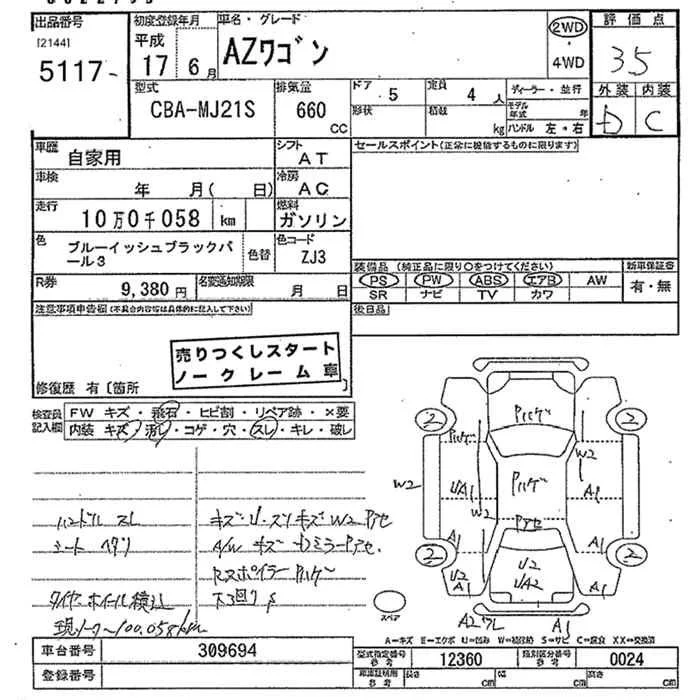 出品番号
[2144]
5117
初度登録年月
平成
17 6月
車名・グレード
AZワゴン
2WD
・
4WD
評価点
35
外装 内装
D C
型式
CBA-MJ21S
排気量
660
CC
ドア 5
定員 4人
形状
積載 kg
ディーラー・並行
モデル年式 年
ハンドル 左・右
車歴 自家用
シフト AT
セールスポイント(正常に機能するものに限ります)
車検 年 月( 日)
冷房 AC
走行 10万0千058 km
燃料 ガソリン
色 ブルーイッシュブラックパール3
色替
色コード ZJ3
装備品 (純正品に限り○をつけてください)
新車保証書
PS PW ABS エアB AW
有・無
SR ナビ TV カワ
R券 9,380円
名変通知期限 月 日
後日品
注意事項申告欄(不具合内容等は具体的に記入して下さい)
売りつくしスタート
ノークレーム車
修復歴 有[箇所
検査員記入欄
FW キズ・飛石・ヒビ割・リペア跡・×要
内装 キズ・汚レ・コゲ・穴・スレ・キレ・破レ
ハンドル スレ
シート ヘタリ
タイヤ・ホイール積込
現メーター100,058km
キズ・U・スリキズ W2 Pアセ
A/W キズ
ミラーPアセ
Rスポイラー Pハゲ
下回りS
Pハゲ
2
2
Pハゲ
W2
W2
UA1
Pハゲ
A1
W2
Pアセ
A1
A1
2
2
U2
A1
U2
UA2
A1
スペア
A1
A=キズ E=エクボ U=凹み W=補修跡 S=サビ C=腐食 XX=交換済
車台番号 309694
登録番号
型式指定番号参考 12360
類別区分番号参考 0024
車庫証明用参考
長さ cm
幅 cm
高さ cm